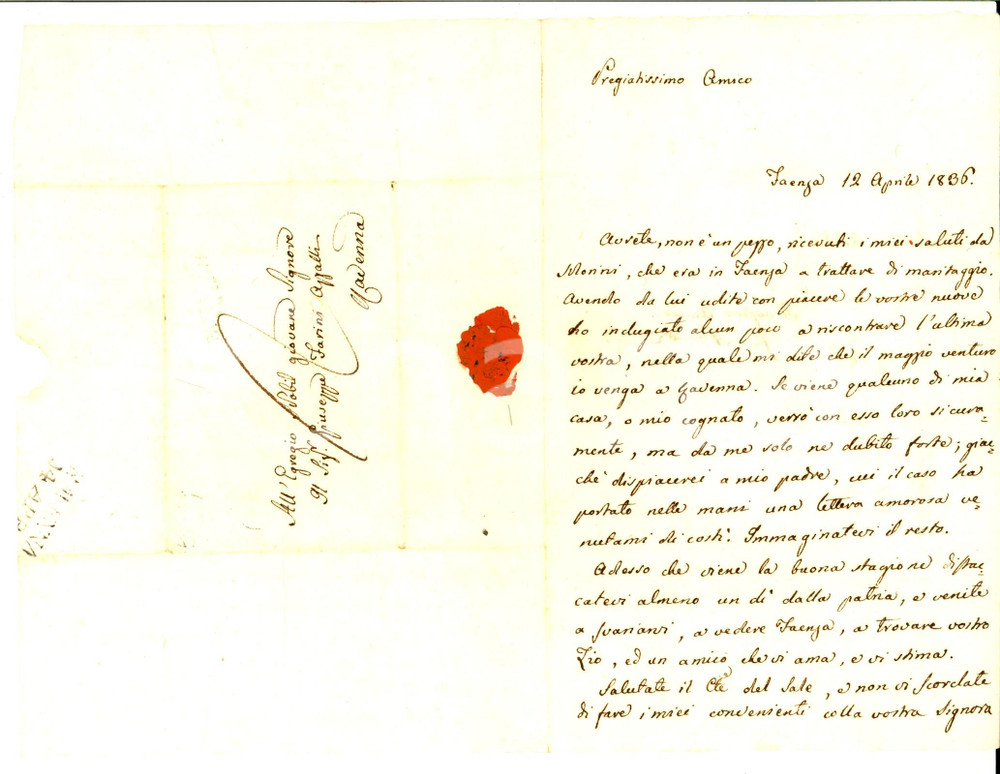 All' Egregio Nobil giovane Signore
Il Sig.r Giuseppe Farini
Ravenna
Pregiatissimo Amico
Faenza 12 Aprile 1836.
Avrete, non è un pezzo, ricevuti i miei saluti da
Monni, che era in Faenza a trattare di maritaggio.
Avendo da lui udite con piacere le vostre nuove
ho indugiato alcun poco a riscontrare l'ultima
vostra, nella quale mi dite che il maggio venturo
io venga a Ravenna. Se viene qualcuno di mia
casa, o mio cognato, verrò con esso loro sicura=
mente, ma da me solo ne dubito forte; giac=
chè dispiacerei a mio padre, cui il caso ha
portato nelle mani una lettera amorosa ve=
nutami di costì. Immaginatevi il resto.
Adesso che viene la buona stagione distac=
catevi almeno un dì dalla patria, e venite
a svariarvi, a vedere Faenza, a trovare vostro
Zio, ed un amico che vi ama, e vi stima.
Salutate il Cte del Sale, e non vi scordate
di fare i miei convenienti colla vostra Signora